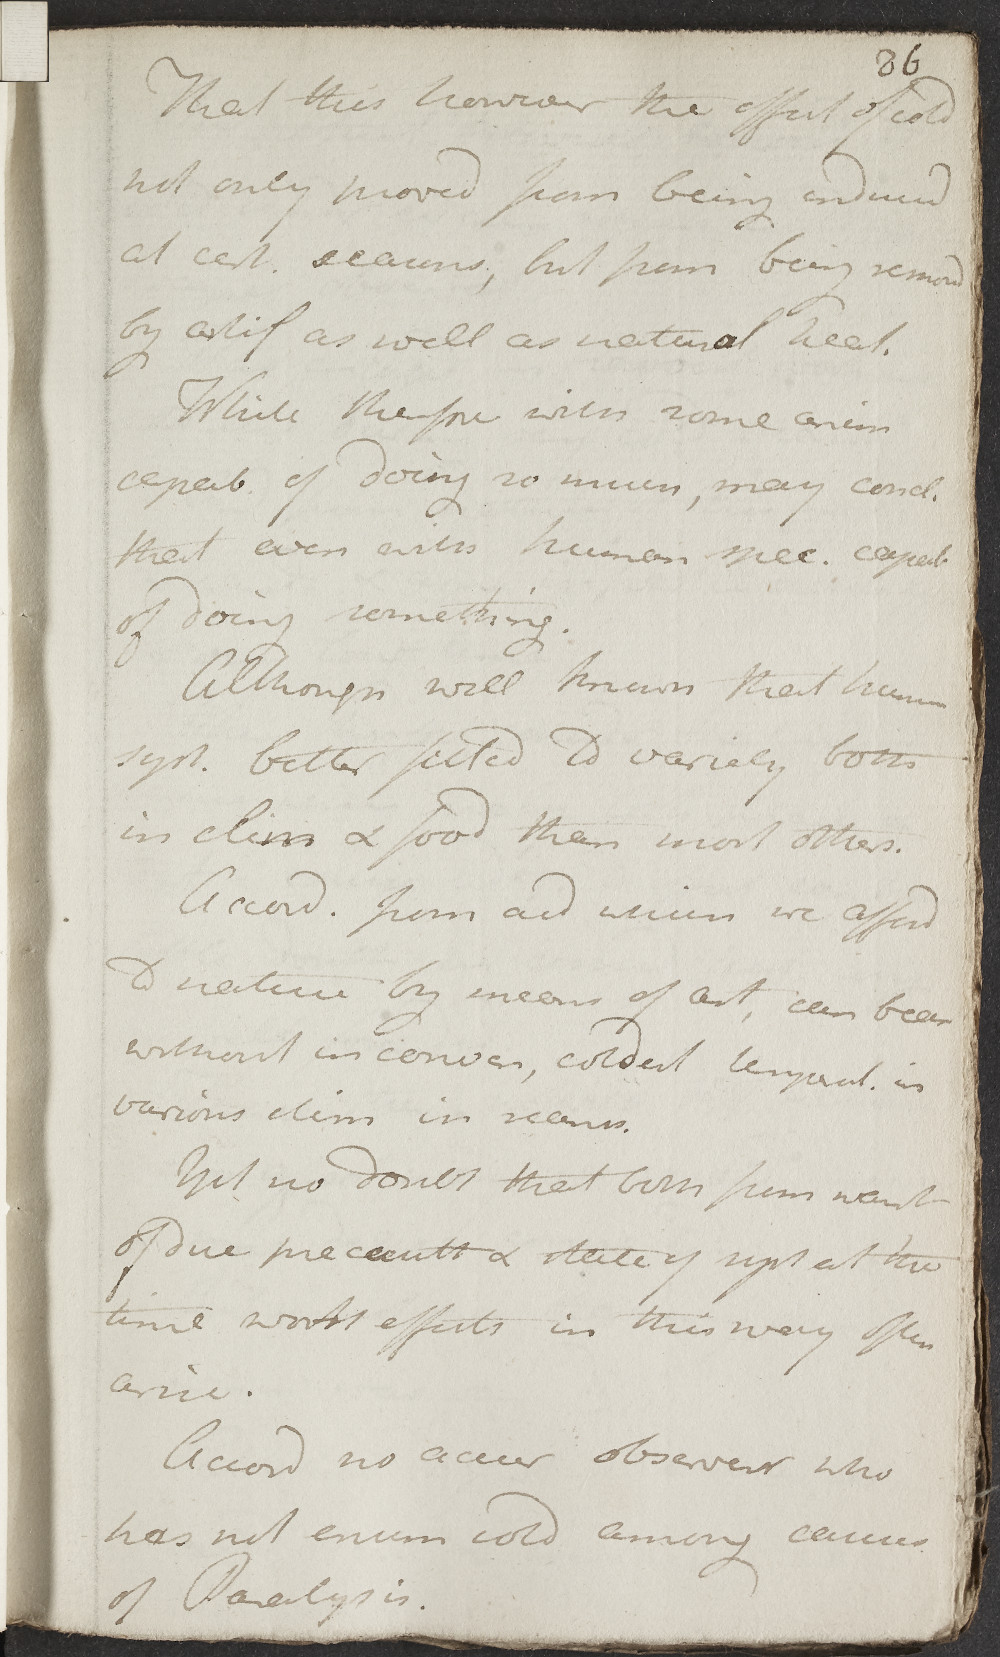 86
That this however the effect of cold
not only proved from being induced
at cert. seasons, but from being remov'd
by artif as well as natural heat.
While therefore with some anim
capab. of doing so much, may concl.
that even with human spec. capab
of doing something.
Although well known that human
syst. better fitted to variety both
in clim & food than most others.
Accord. from aid which we afford
to nature by means of art, can bear
without inconven, coldest temperat. in
various clim in seasons.
Yet no doubt that both from want
of due precautt & state of syst at the
time worst effects in this way often
arise.
Accord no accur observer who
has not enum cold among causes
of Paralysis.